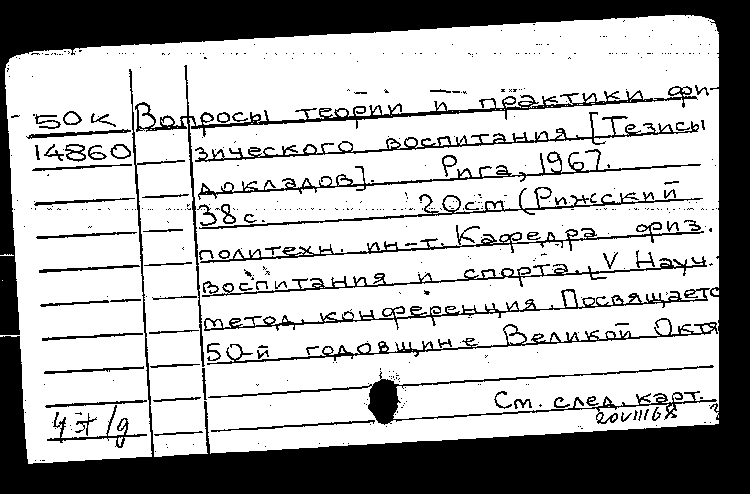 50К Вопросы теории и практики фи-
14860 зического воспитания. [Тезисы
докладов]. Рига, 1967.
38с. 20ст (Рижский
политехн. ин-т. Кафедра физ.
воспитания и спорта. V Науч.-
метод. конференция. Посвящаетс
50-й годовщине Великой Октя
См. след. карт.
20VIII68